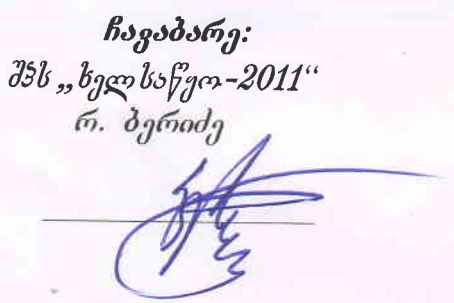 ჩავაბარე:
შპს „ხელსაწყო-2011“
რ. ბერიძე